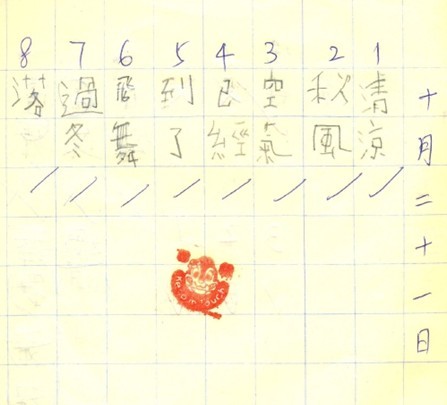 十月二十一日
1 清涼
2 秋風
3 空氣
4 已經
5 到了
6 飛舞
7 過冬
8 落